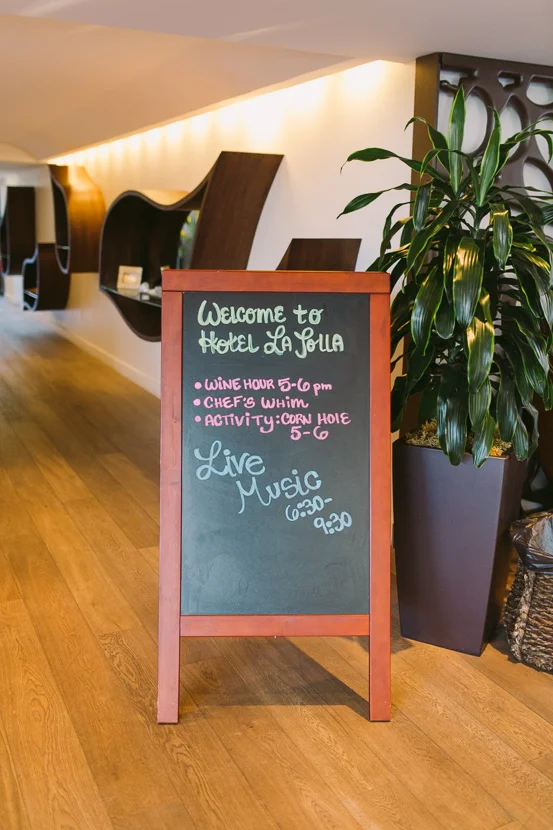 Welcome to
Hotel La Jolla
• WINE HOUR 5-6 pm
• CHEF'S WHIM
• ACTIVITY: CORN HOLE
5-6
Live
Music
6:30-
9:30